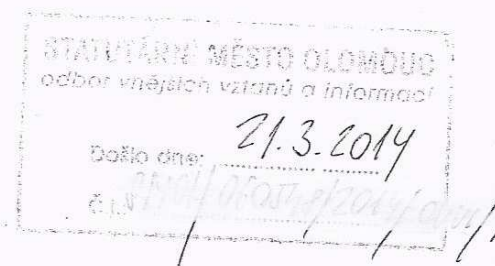 STATUTÁRNÍ MĚSTO OLOMOUC
odbor vnějších vztahů a informací
Došlo dne: 21.3.2014
č.j.